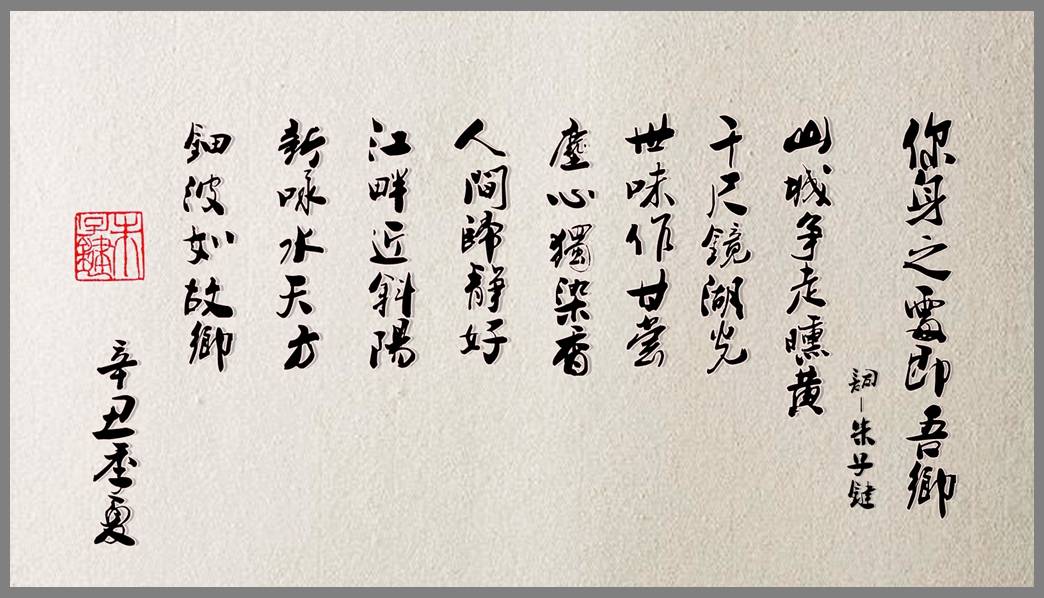 你身之處即吾鄉
詞一朱子鍵
山城爭走曛黃
千尺鏡湖光
世味作甘嘗
塵心獨染香
人間歸靜好
江畔近斜陽
新咏水天方
鈿波如故鄉
辛丑季夏
朱子鍵